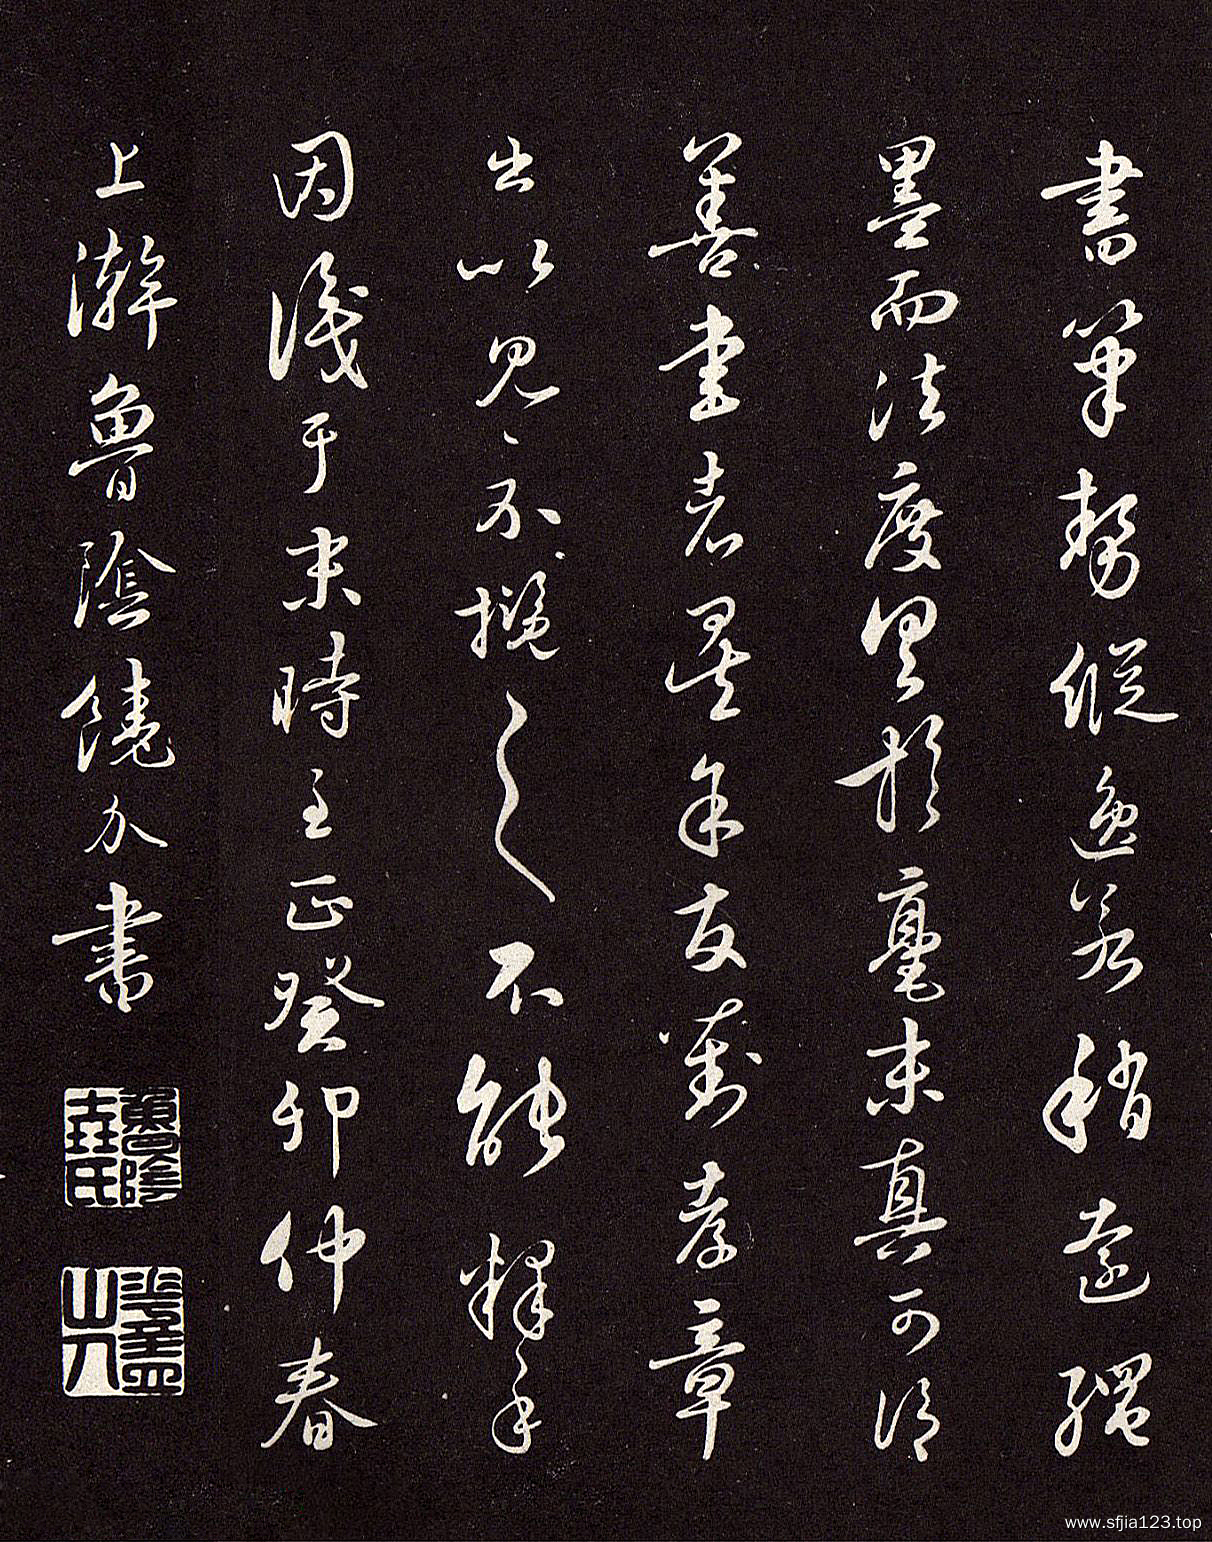 書筆勢縱逸若稍遠繩
墨而法度具於毫末真可謂
善書者異余友對孝章
出以見示撫之不能釋手
因識于末時至正癸卯仲春
上澣魯陰饒介書
www.sfjia123.top